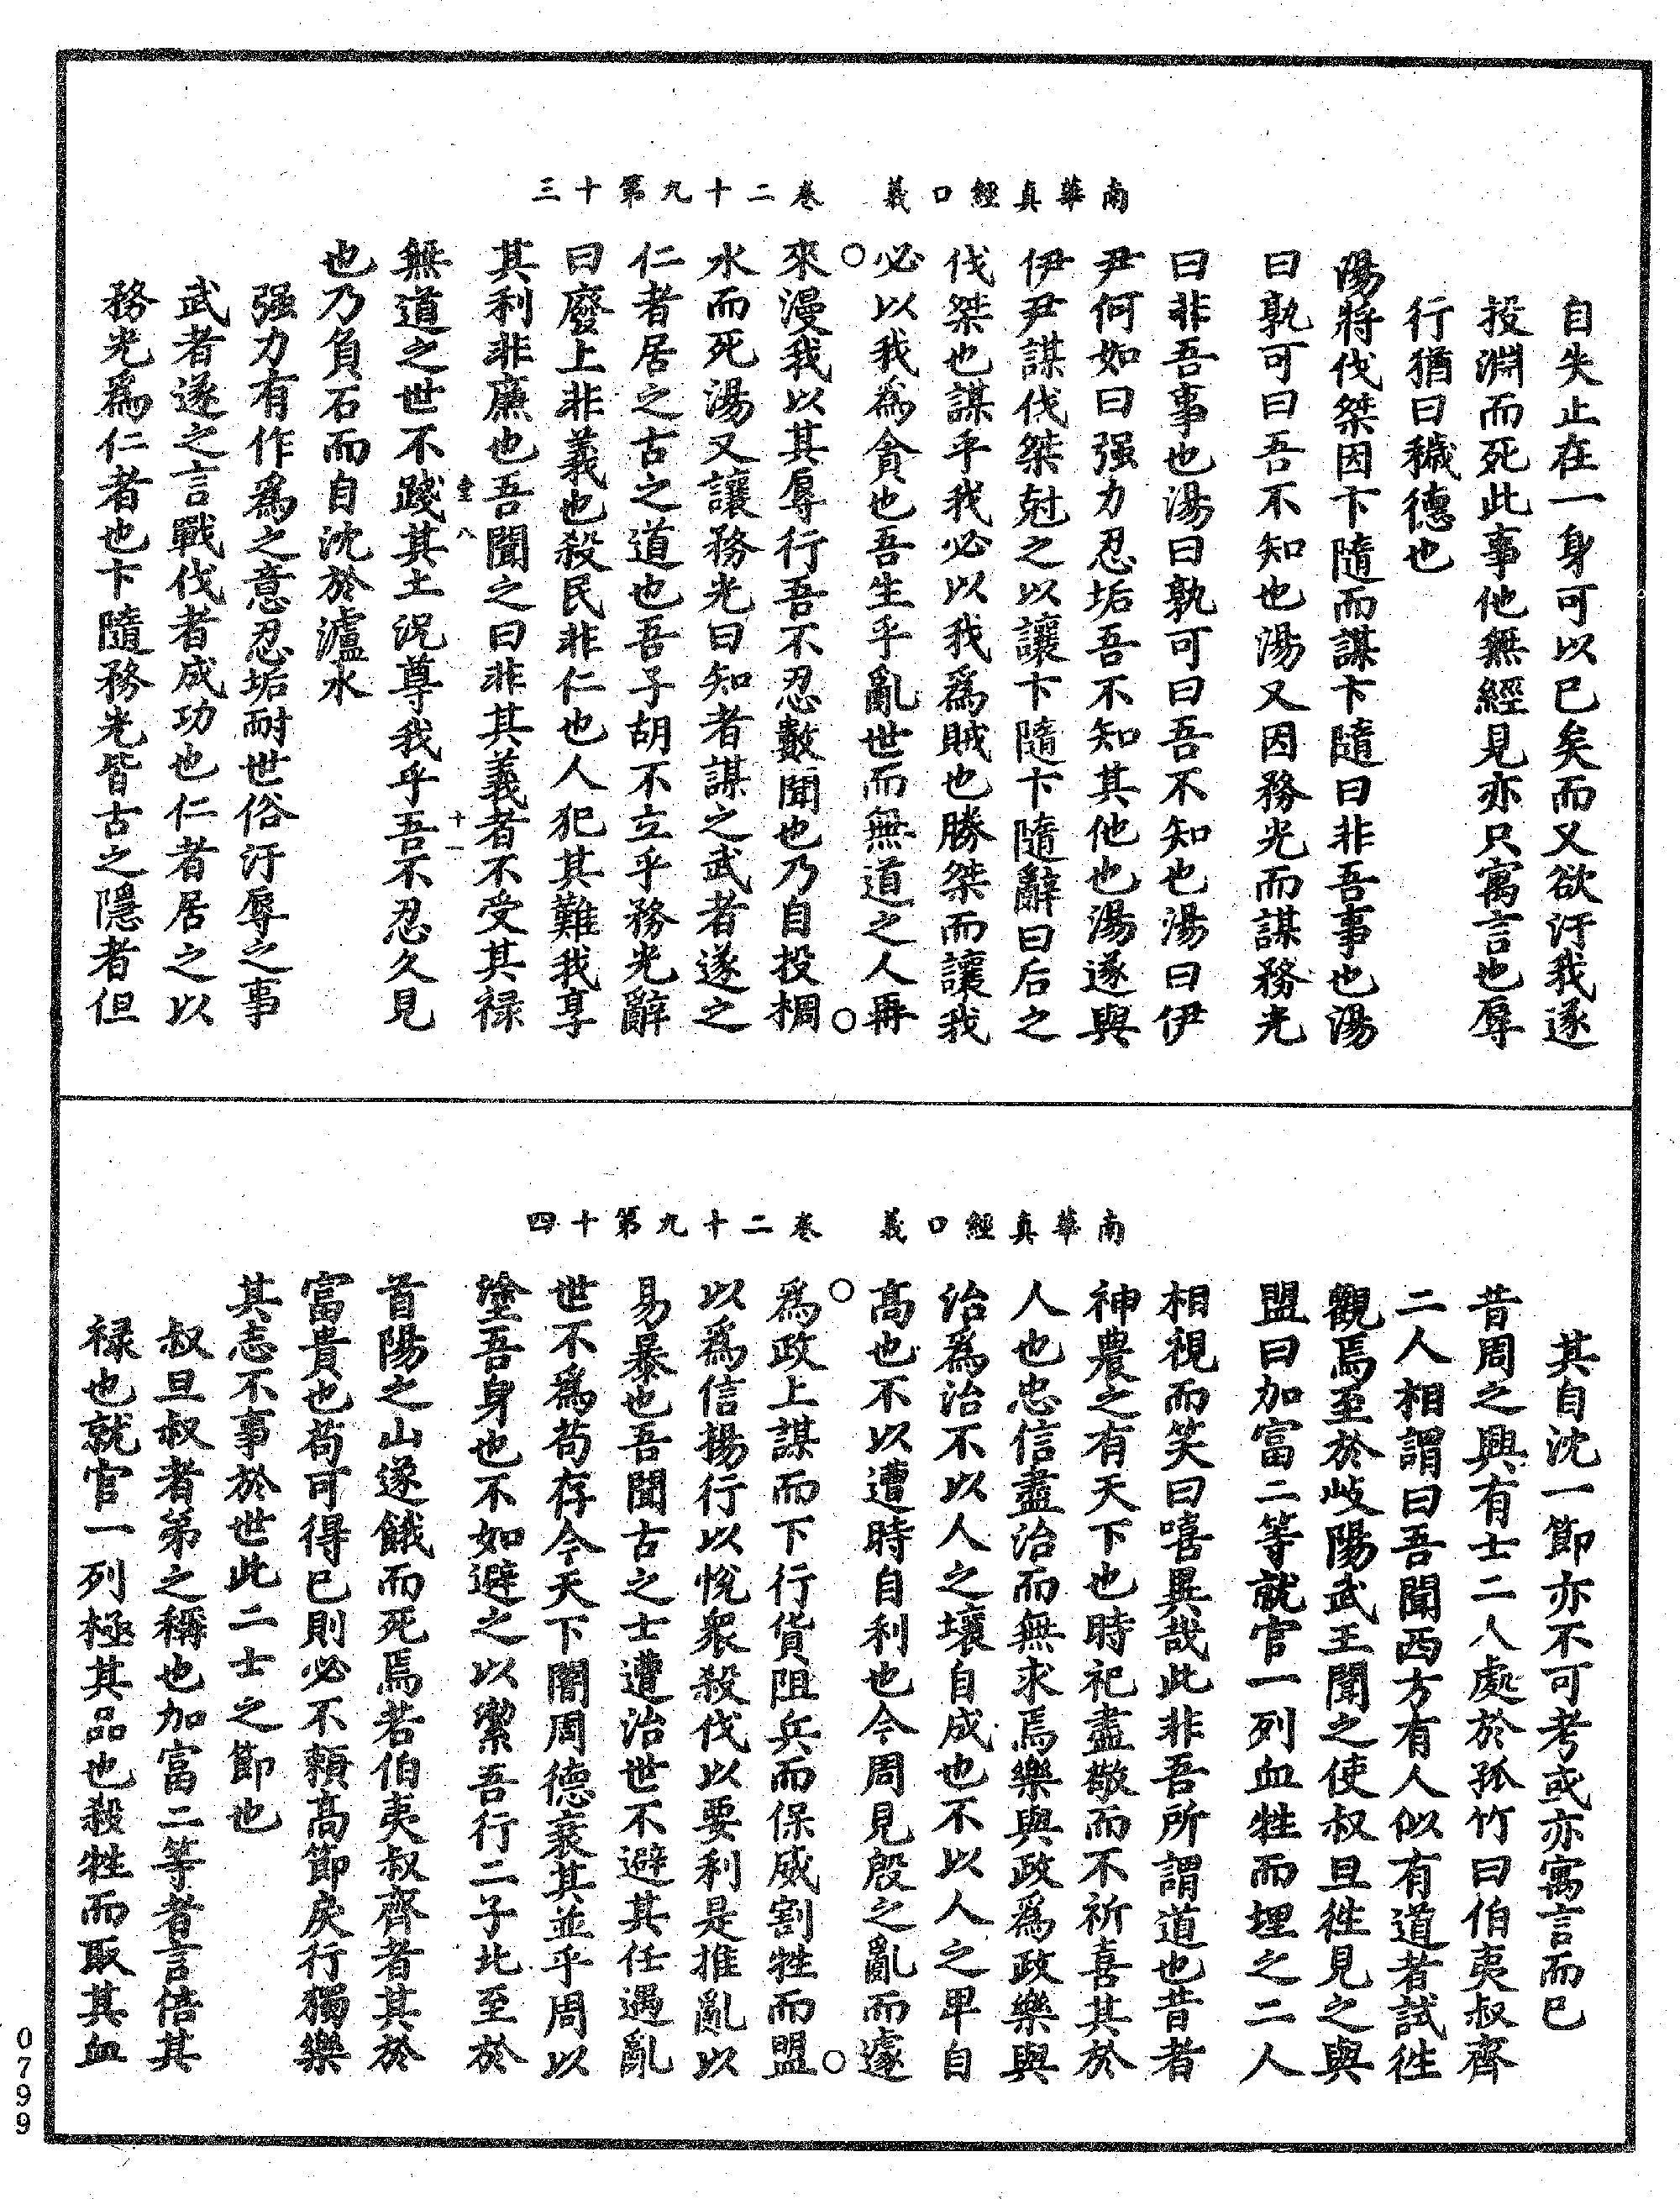 南華真經口義　卷二十九第十三
自失止在一身可以已矣而又欲汙我遂
投淵而死此事他無經見亦只寓言也辱
行猶曰穢德也
湯將伐桀因卞隨而謀卞隨曰非吾事也湯
曰孰可曰吾不知也湯又因務光而謀務光
曰非吾事也湯曰孰可曰吾不知也湯曰伊
尹何如曰强力忍垢吾不知其他也湯遂與
伊尹謀伐桀尅之以讓卞隨卞隨辭曰后之
伐桀也謀乎我必以我為賊也勝桀而讓我
必以我為貪也吾生乎亂世而無道之人再
來漫我以其辱行吾不忍數聞也乃自投椆
水而死湯又讓務光曰知者謀之武者遂之
仁者居之古之道也吾子胡不立乎務光辭
曰廢上非義也殺民非仁也人犯其難我享
其利非廉也吾聞之曰非其義者不受其禄
八　十一
無道之世不踐其土況尊我乎吾不忍久見
也乃負石而自沈於瀘水
强力有作為之意忍垢耐世俗汙辱之事
武者遂之言戰伐者成功也仁者居之以
務光為仁者也卞隨務光皆古之隱者但
南華真經口義　卷二十九第十四
其自沈一節亦不可考或亦寓言而已
昔周之興有士二人處於孤竹曰伯夷叔齊
二人相謂曰吾聞西方有人似有道者試徃
觀焉至於岐陽武王聞之使叔旦徃見之與
盟曰加富二等就官一列血牲而埋之二人
相視而笑曰嘻異哉此非吾所謂道也昔者
神農之有天下也時祀盡敬而不祈喜其於
人也忠信盡治而無求焉樂與政為政樂與
治為治不以人之壞自成也不以人之卑自
高也不以遭時自利也今周見殷之亂而遽
為政上謀而下行貨阻兵而保威割牲而盟
以為信揚行以悅衆殺伐以要利是推亂以
易暴也吾聞古之士遭治世不避其任遇亂
世不為苟存今天下闇周德衰其並乎周以
塗吾身也不如避之以絜吾行二子北至於
首陽之山遂餓而死焉若伯夷叔齊者其於
富貴也苟可得已則必不頼高節戾行獨樂
其志不事於世此二士之節也
叔旦叔者第之稱也加富二等者言倍其
禄也就官一列極其品也殺牲而取其血
0799